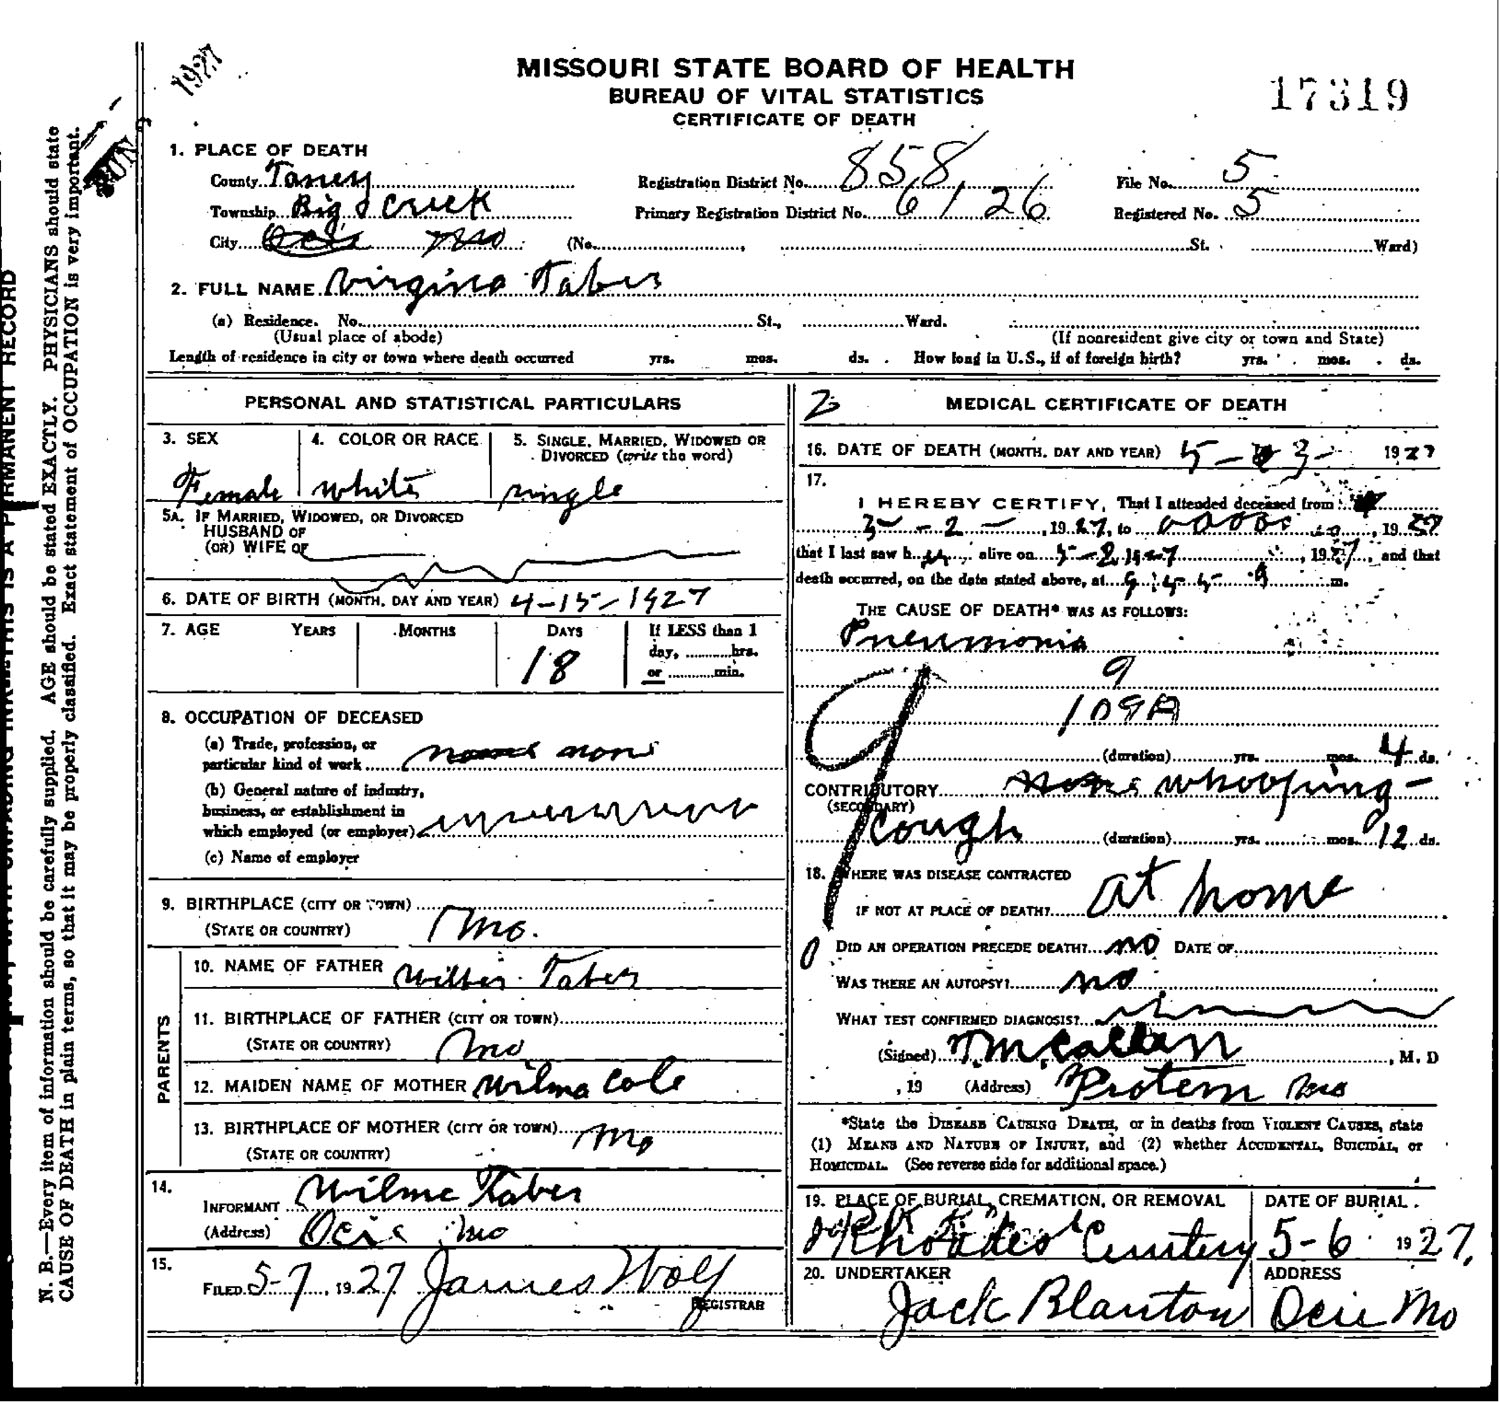 1927
MISSOURI STATE BOARD OF HEALTH
BUREAU OF VITAL STATISTICS
CERTIFICATE OF DEATH
17319
JUN
1. PLACE OF DEATH
County Taney Registration District No. 858 File No. 5
Township Big Creek Primary Registration District No. 6126 Registered No. 5
City Ocie Mo (No. , St. Ward)
2. FULL NAME Virginia Taber
(a) Residence. No. St., Ward.
(Usual place of abode) (If nonresident give city or town and State)
Length of residence in city or town where death occurred yrs. mos. ds. How long in U.S., if of foreign birth? yrs. mos. ds.
PERSONAL AND STATISTICAL PARTICULARS
3. SEX 4. COLOR OR RACE 5. SINGLE, MARRIED, WIDOWED OR
DIVORCED (write the word)
Female white single
5A. IF MARRIED, WIDOWED, OR DIVORCED
HUSBAND OF
(OR) WIFE OF
6. DATE OF BIRTH (MONTH, DAY AND YEAR) 4-15-1927
7. AGE YEARS MONTHS DAYS If LESS than 1
day, hrs.
or min.
18
8. OCCUPATION OF DECEASED
(a) Trade, profession, or
particular kind of work none
(b) General nature of industry,
business, or establishment in
which employed (or employer)
(c) Name of employer
9. BIRTHPLACE (CITY OR TOWN)
(STATE OR COUNTRY) Mo.
PARENTS
10. NAME OF FATHER Wilber Taber
11. BIRTHPLACE OF FATHER (CITY OR TOWN)
(STATE OR COUNTRY) Mo
12. MAIDEN NAME OF MOTHER Wilma Cole
13. BIRTHPLACE OF MOTHER (CITY OR TOWN) Mo
(STATE OR COUNTRY)
14.
INFORMANT Wilma Taber
(Address) Ocie Mo
15.
FILED 5-7, 1927 James Wolf
REGISTRAR
2 MEDICAL CERTIFICATE OF DEATH
16. DATE OF DEATH (MONTH, DAY AND YEAR) 5-3- 1927
17.
I HEREBY CERTIFY, That I attended deceased from
-2-, 1927, to , 1927
that I last saw h alive on 5-2 1927, 1927, and that
death occurred, on the date stated above, at 9:45 a m.
THE CAUSE OF DEATH* WAS AS FOLLOWS:
Pneumonia
9
109A
(duration) yrs. mos. 4 ds.
CONTRIBUTORY none whooping-
(SECONDARY)
cough (duration) yrs. mos. 12 ds.
9
18. WHERE WAS DISEASE CONTRACTED
IF NOT AT PLACE OF DEATH? at home
0 DID AN OPERATION PRECEDE DEATH? no DATE OF
WAS THERE AN AUTOPSY? no
WHAT TEST CONFIRMED DIAGNOSIS?
(Signed) , M. D
, 19 (Address) Protem Mo
*State the DISEASE CAUSING DEATH, or in deaths from VIOLENT CAUSES, state
(1) MEANS AND NATURE OF INJURY, and (2) whether ACCIDENTAL, SUICIDAL, or
HOMICIDAL. (See reverse side for additional space.)
19. PLACE OF BURIAL, CREMATION, OR REMOVAL DATE OF BURIAL
Rhoades Cemetery 5-6 1927,
20. UNDERTAKER ADDRESS
Jack Blanton Ocie Mo
N. B.—Every item of information should be carefully supplied. AGE should be stated EXACTLY. PHYSICIANS should state
CAUSE OF DEATH in plain terms, so that it may be properly classified. Exact statement of OCCUPATION is very important.
THIS IS A PERMANENT RECORD